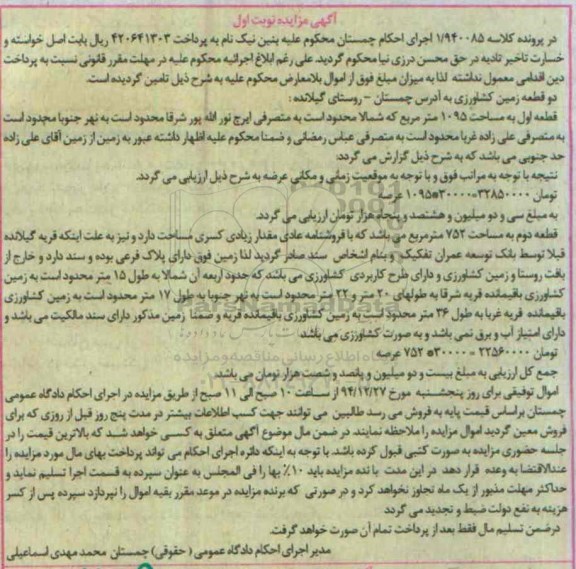 آگهی مزایده نوبت اول
در پرونده کلاسه ۱/۹۴۰۰۸۵ اجرای احکام چمستان محکوم علیه بنین نیک نام به پرداخت ۴۲۰۶۴۱۳۰۳ ریال بابت اصل خواسته و
خسارت تاخیر تادیه در حق محسن درزی نیا محکوم گردید. علی رغم ابلاغ اجرائیه محکوم علیه در مهلت مقرر قانونی نسبت به پرداخت
دین اقدامی معمول نداشته لذا به میزان مبلغ فوق از اموال بلامعارض محکوم علیه به شرح ذیل تامین گردیده است.
دو قطعه زمین کشاورزی به آدرس چمستان - روستای گیلانده :
قطعه اول به مساحت ۱۰۹۵ متر مربع که شمالا محدود است به متصرفی ایرج نور الله پور شرقا محدود است به نهر جنوبا محدود است
به متصرفی علی زاده غربا محدود است به متصرفی عباس رمضانی و ضمنا محکوم علیه اظهار داشته عبور به زمین از زمین آقای علی زاده
حد جنوبی می باشد که به شرح ذیل گزارش می گردد:
نتیجه با توجه به مراتب فوق و با توجه به موقعیت زمانی و مکانی عرصه به شرح ذیل ارزیابی می گردد.
تومان ۳۲۸۵۰۰۰۰=۳۰۰۰۰*۱۰۹۵ عرصه
به مبلغ سی و دو میلیون و هشتصد و پنجاه هزار تومان ارزیابی می گردد.
قطعه دوم به مساحت ۷۵۲ مترمربع می باشد که با فروشنامه عادی مقدار زیادی کسری مساحت دارد و نیز به علت اینکه قریه گیلانده
قبلا توسط بانک توسعه عمران تفکیک و بنام اشخاص سند صادر گردید لذا زمین فوق دارای پلاک فرعی بوده و سند دارد و خارج از
بافت روستا و زمین کشاورزی و دارای طرح کاربردی کشاورزی می باشد که حدود اربعه آن شمالا به طول ۱۵ متر محدود است به زمین
کشاورزی باقیمانده قریه شرقا به طولهای ۲۰ متر و ۲۲ متر محدود است به نهر جنوبا به طول ۱۷ متر محدود است به زمین کشاورزی
باقیمانده قریه غربا به طول ۳۶ متر محدود است به زمین کشاورزی باقیمانده قریه و ضمنا زمین مذکور دارای سند مالکیت می باشد و
دارای امتیاز آب و برق نمی باشد و به صورت کشاورزی می باشد
تومان ۲۲۵۶۰۰۰۰ = ۳۰۰۰۰* ۷۵۲ عرصه
جمع کل ارزیابی به مبلغ بیست و دو میلیون و پانصد و شصت هزار تومان می باشد.
اموال توقیفی برای روز پنجشنبه مورخ ۹۴/۱۲/۲۷ از ساعت ۱۰ صبح الی ۱۱ صبح از طریق مزایده در اجرای احکام دادگاه عمومی
چمستان براساس قیمت پایه به فروش می رسد طالبین می توانند جهت کسب اطلاعات بیشتر در مدت پنج روز قبل از روزی که برای
فروش معین گردید اموال مزایده را ملاحظه نمایند. در ضمن مال موضوع آگهی متعلق به کسی خواهد شد که بالاترین قیمت را در
جلسه حضوری مزایده به صورت کتبی قبول کرده باشد. با توجه به اینکه دائره اجرای احکام می تواند پرداخت بهای مال مورد مزایده را
عندالاقتضا به وعده قرار دهد در این مدت با نده مزایده باید ۱۰٪ بها را فی المجلس به عنوان سپرده به قسمت اجرا تسلیم نماید و
حداکثر مهلت مذبور از یک ماه تجاوز نخواهد کرد و در صورتی که برنده مزایده در موعد مقرر بقیه اموال را نپردازد سپرده پس از کسر
هزینه به نفع دولت ضبط و تجدید می گردد
درضمن تسلیم مال فقط بعد از پرداخت تمام آن صورت خواهد گرفت.
مدیر اجرای احکام دادگاه عمومی ( حقوقی) چمستان محمد مهدی اسماعیلی